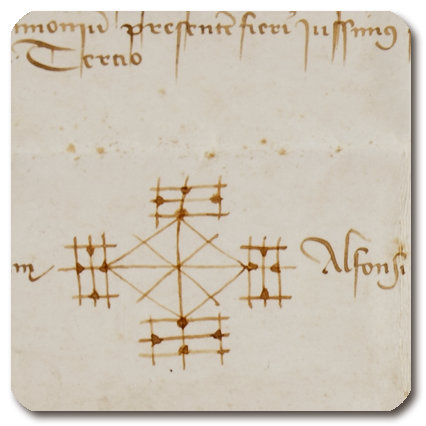 moniu presente fieri Jussimus
Tercio
m Alfonsi